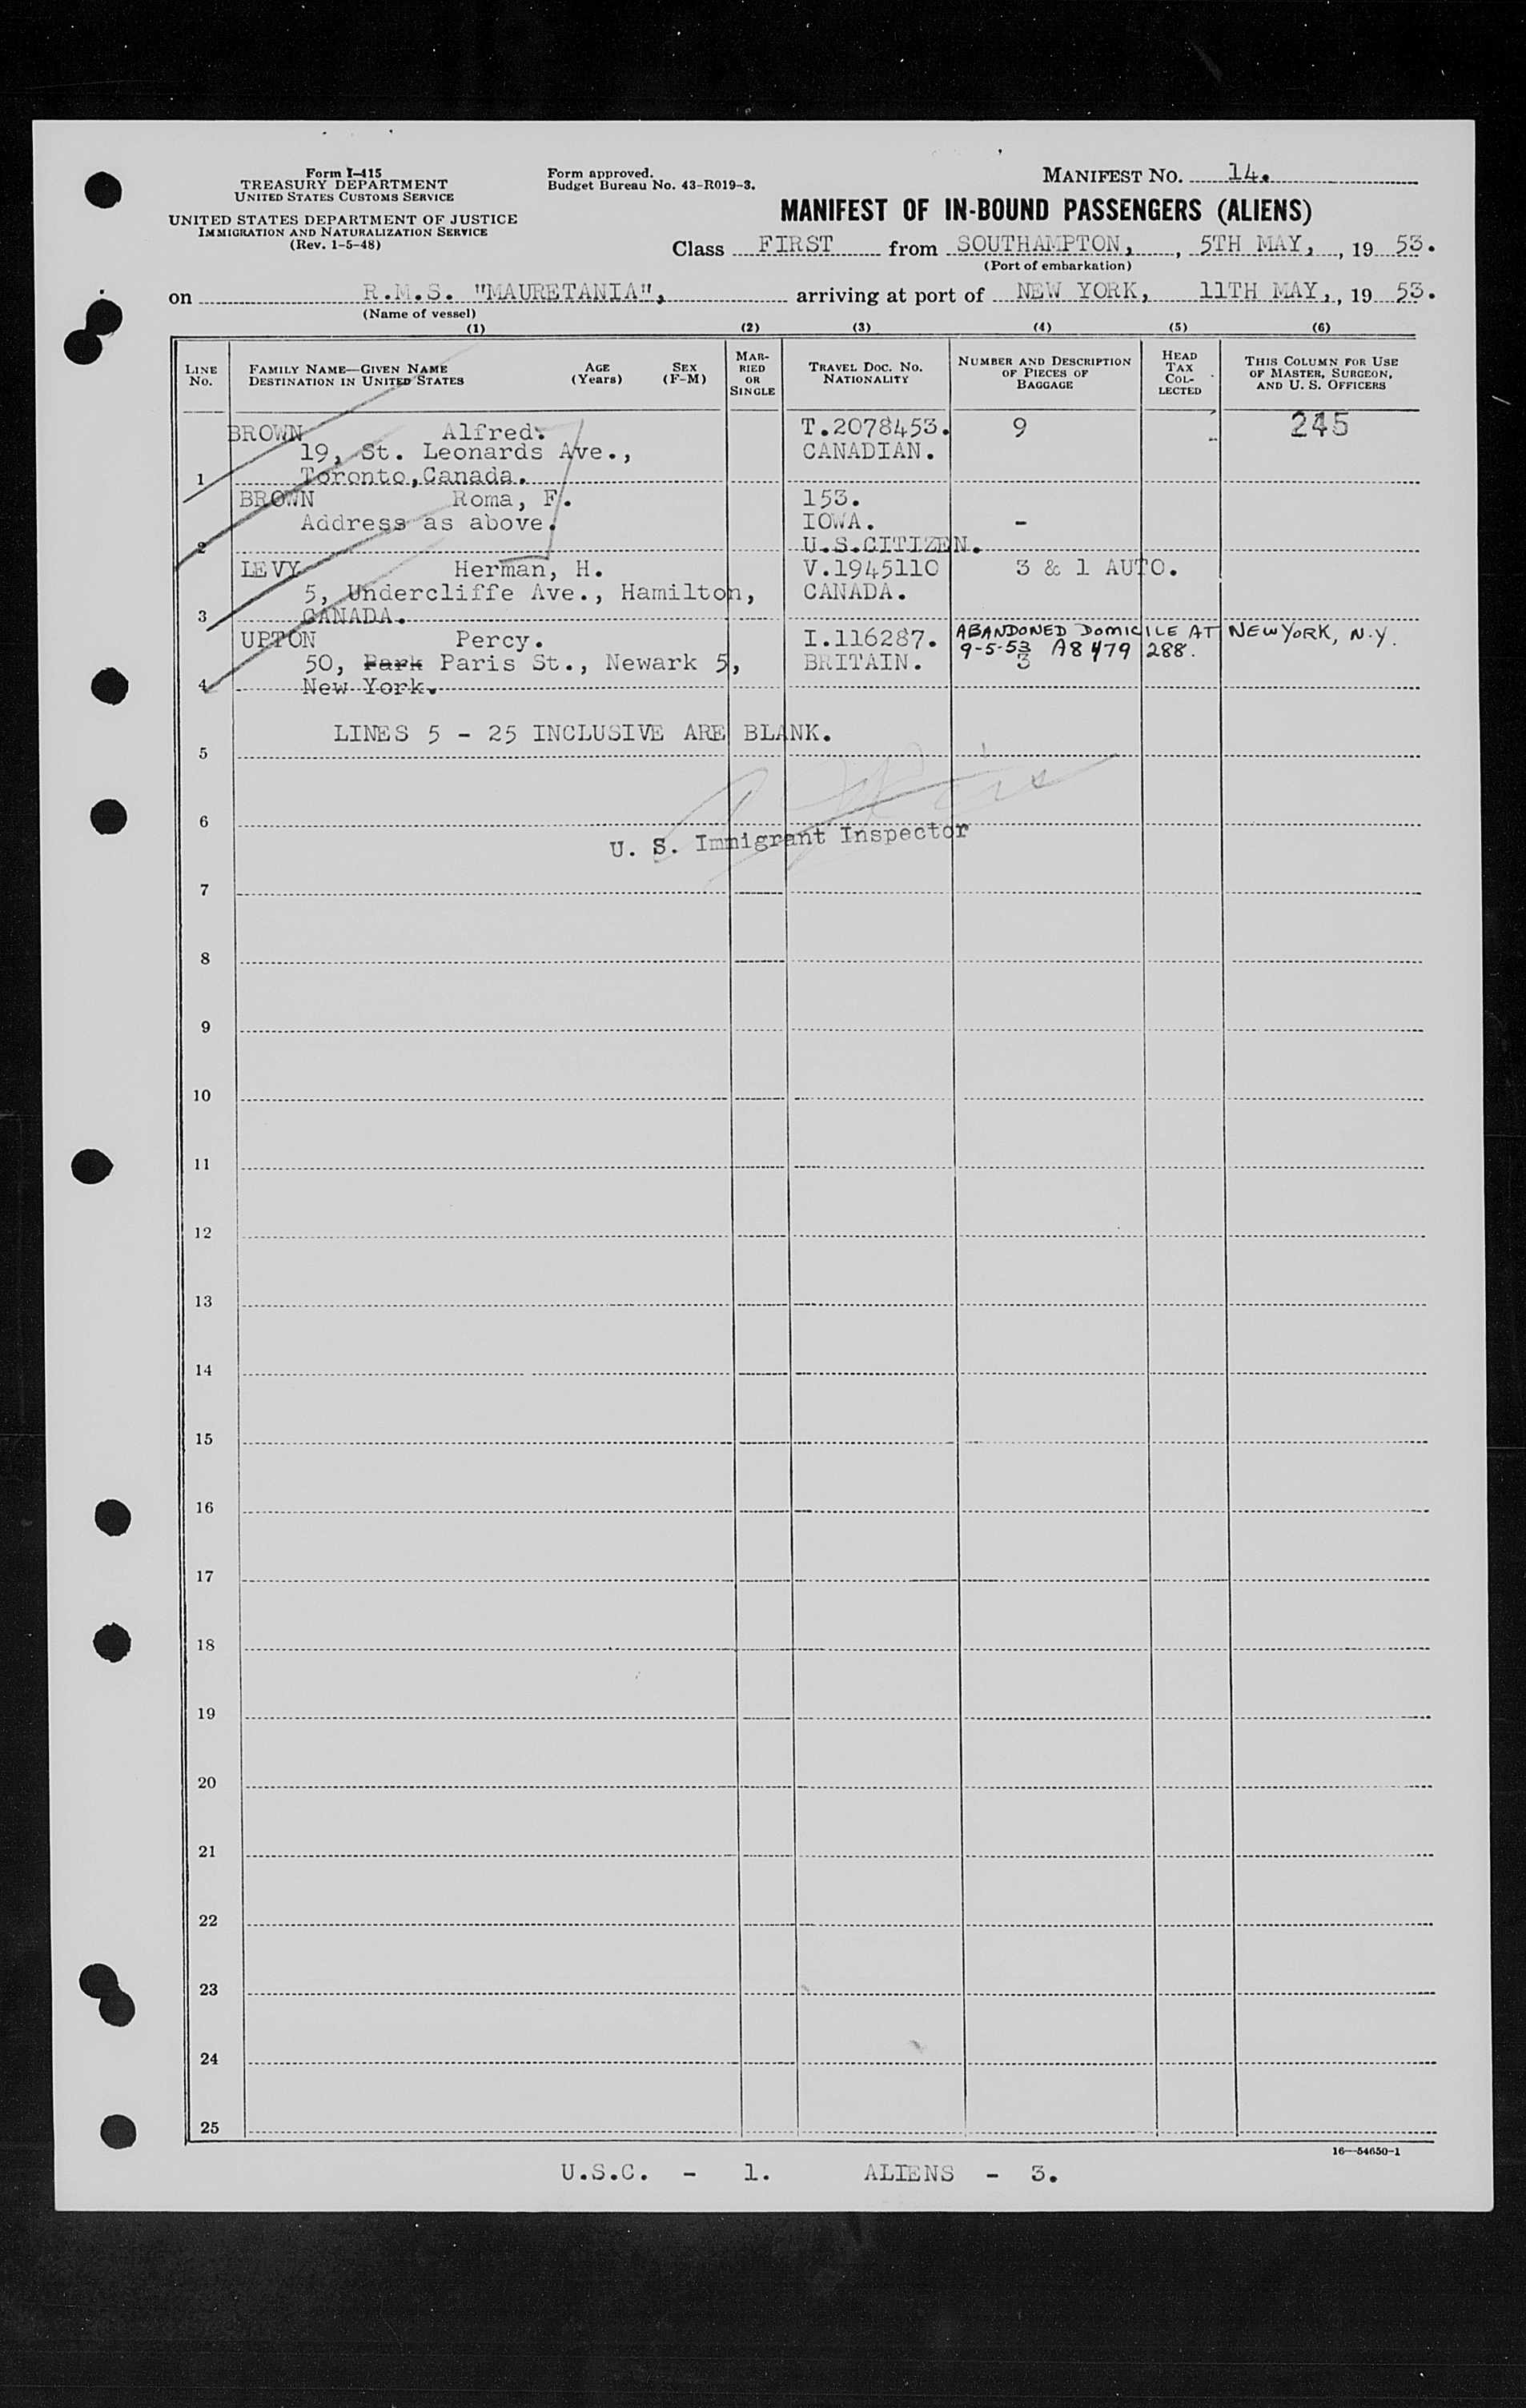 Form I-415
TREASURY DEPARTMENT
UNITED STATES CUSTOMS SERVICE
UNITED STATES DEPARTMENT OF JUSTICE
IMMIGRATION AND NATURALIZATION SERVICE
(Rev. 1-5-48)
Form approved.
Budget Bureau No. 43-R019-3.
MANIFEST NO. 14.
MANIFEST OF IN-BOUND PASSENGERS (ALIENS)
Class FIRST from SOUTHAMPTON, , 5TH MAY, , 19 53.
(Port of embarkation)
on R.M.S. "MAURETANIA", arriving at port of NEW YORK, 11TH MAY, , 19 53.
(Name of vessel)
(1) (2) (3) (4) (5) (6)
LINE NO.
FAMILY NAME—GIVEN NAME AGE (Years) SEX (F-M)
DESTINATION IN UNITED STATES
MARRIED OR SINGLE
TRAVEL DOC. NO. NATIONALITY
NUMBER AND DESCRIPTION OF PIECES OF BAGGAGE
HEAD TAX COLLECTED
THIS COLUMN FOR USE OF MASTER, SURGEON, AND U. S. OFFICERS
BROWN Alfred. T.2078453. 9 245
19, St. Leonards Ave., CANADIAN.
1 Toronto, Canada.
BROWN Roma, F. 153.
Address as above. IOWA. -
2 U.S.CITIZEN.
LEVY Herman, H. V.1945110 3 & 1 AUTO.
5, Undercliffe Ave., Hamilton, CANADA.
3 CANADA.
UPTON Percy. I.116287. ABANDONED DOMICILE AT NEW YORK, N.Y.
50, Park Paris St., Newark 5, BRITAIN. 9-5-53 A8 479 288.
3
4 New York.
LINES 5 - 25 INCLUSIVE ARE BLANK.
5
6
U. S. Immigrant Inspector
7
8
9
10
11
12
13
14
15
16
17
18
19
20
21
22
23
24
25
16—54650-1
U.S.C. - 1. ALIENS - 3.